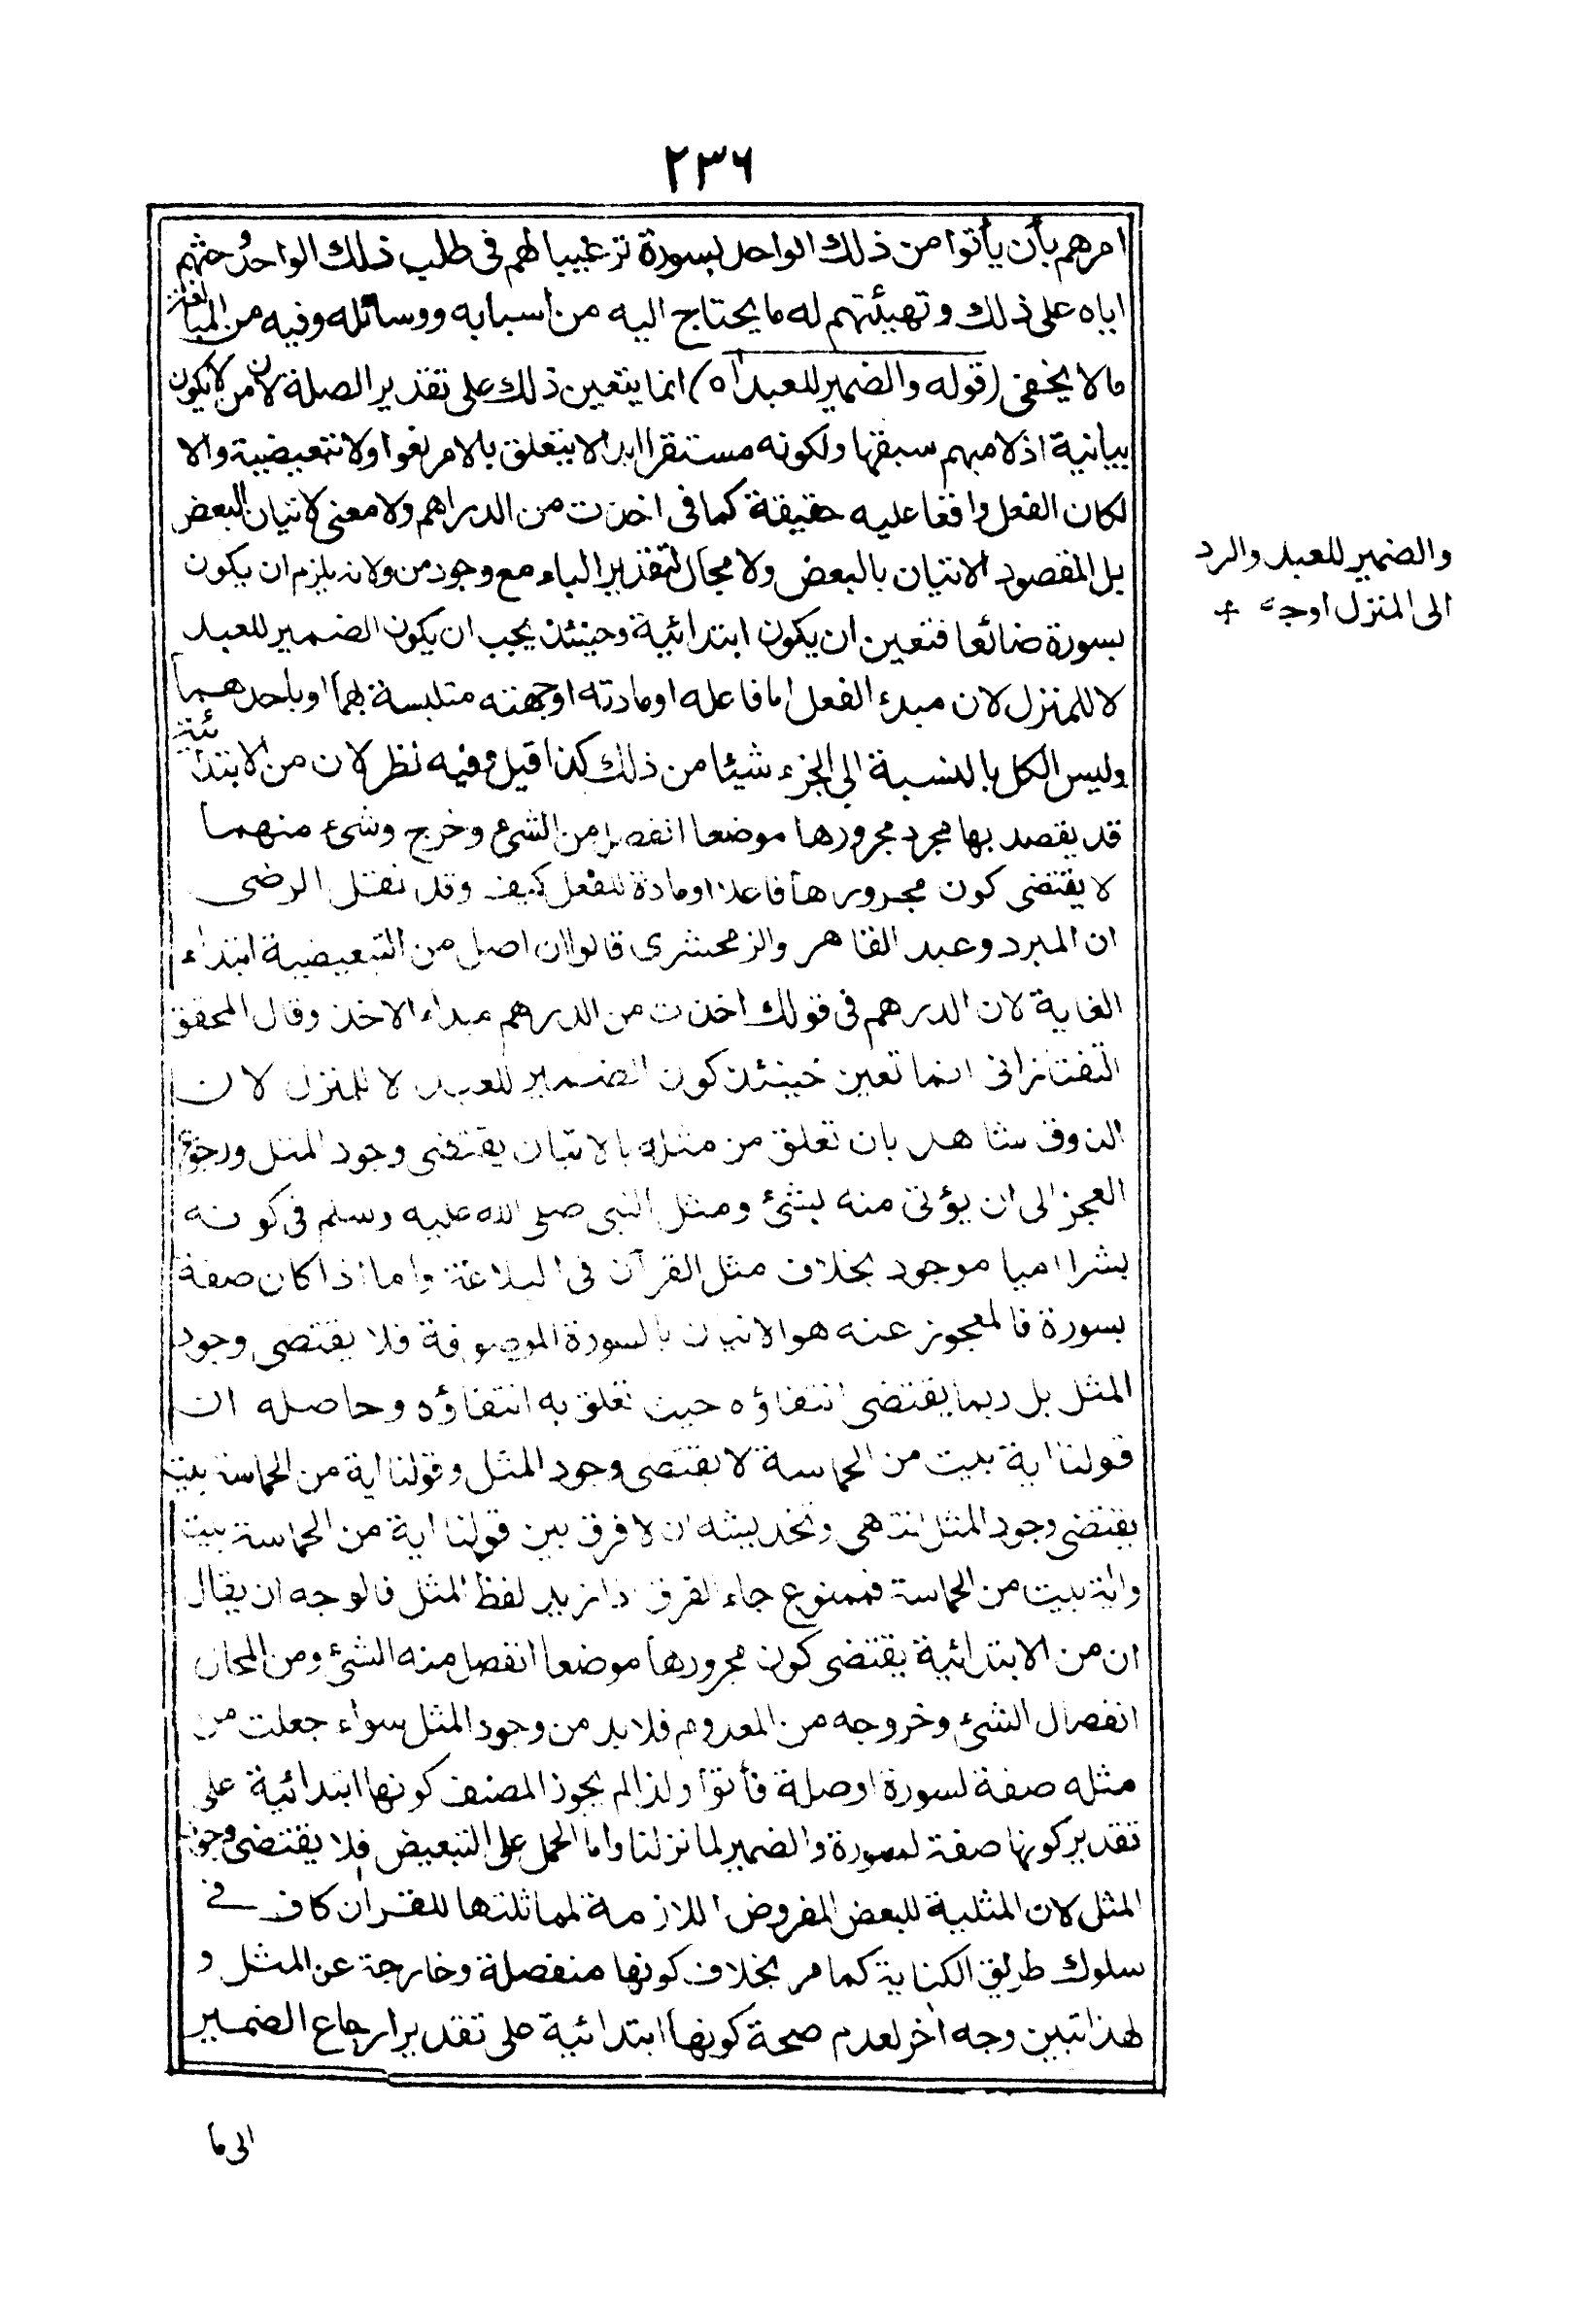 ٢٣٦
امرهم بأن يأتوا من ذلك الواحد بسورة ترغيبا لهم فى طلب ذلك الواحد وحثهم
اياه على ذلك وتهيئتهم له ما يحتاج اليه من اسبابه ووسائله وفيه من المبالغة
ما لا يخفى (قوله والضمير للعبد اه) انما يتعين ذلك على تقدير الصلة لان من لا يكون
بيانية اذ لا مبهم سبقها ولكونه مستقرا ابدا لا يتعلق بالامر لغوا ولا تبعيضية والا
لكان الفعل واقعا عليه حقيقة كما فى اخذت من الدراهم ولا معنى لاتيان البعض
بل المقصود الاتيان بالبعض ولا مجال لتقدير الباء مع وجود من ولانه يلزم ان يكون
بسورة ضائعا فتعين ان يكون ابتدائية وحينئذ يجب ان يكون الضمير للعبد
لا للمنزل لان مبدء الفعل اما فاعله او مادته او جهته متلبسة بهما او باحدهما
وليس الكل بالنسبة الى الجزء شيئا من ذلك كذا قيل وفيه نظر لان من الابتدائية
قد يقصد بها مجرد مجرورها موضعا انفصل من الشئ وخرج وشئ منهما
لا يقتضى كون مجرورها فاعلا او مادة للفعل كيف وقد نقل الرضى
ان المبرد وعبد القاهر والزمخشرى قالوا ان اصل من التبعيضية ابتداء
الغاية لان الدرهم فى قولك اخذت من الدرهم مبدأ الاخذ وقال المحقق
التفتازانى انما تعين حينئذ كون الضمير للعبد لا للمنزل لان
الذوق شاهد بان تعلق من مثله بالاتيان يقتضى وجود المثل ورجوع
العجز الى ان يؤتى منه بشئ ومثل النبى صلى الله عليه وسلم فى كونه
بشرا اميا موجود بخلاف مثل القرآن فى البلاغة واما اذا كان صفة
بسورة فالمعجوز عنه هو الاتيان بالسورة الموصوفة فلا يقتضى وجود
المثل بل ربما يقتضى انتفاؤه حيث تعلق به انتفاؤه وحاصله ان
قولنا اية بيت من الحماسة لا يقتضى وجود المثل وقولنا اية من الحماسة بيت
يقتضى وجود المثل انتهى ونحد بيثه ان لا فرق بين قولنا اية من الحماسة بيت
واية بيت من الحماسة فممنوع جاء الفرق اذا زيد لفظ المثل فالوجه ان يقال
ان من الابتدائية يقتضى كون مجرورها موضعا انفصل منه الشئ ومن المحال
انفصال الشئ وخروجه من المعدوم فلا بد من وجود المثل سواء جعلت من
مثله صفة لسورة او صلة فأتوا ولذا لم يجوز المصنف كونها ابتدائية على
تقدير كونها صفة لسورة والضمير لما نزلنا واما الحمل على التبعيض فلا يقتضى وجود
المثل لان المثلية للبعض المفروض اللازمة لمماثلتها للقران كاف فى
سلوك طريق الكناية كما مر بخلاف كونها منفصلة وخارجة عن المثل و
لهذا تبين وجه اخر لعدم صحة كونها ابتدائية على تقدير ارجاع الضمير
الى ما
والضمير للعبد والرد
الى المنزل اوجه